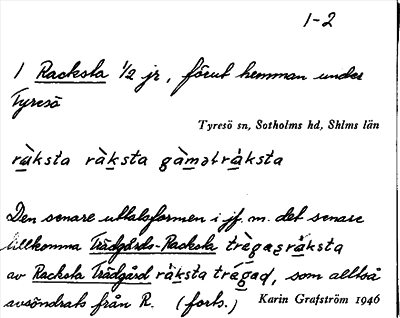 1-2
1 Racksta ½ jr, förut hemman under
Tyresö
Tyresö sn, Sotholms hd, Shlms län
ràksta ràksta gàməlràksta
Den senare uttalsformen i jf. m. det senare
tillkomma Trädgårds-Racksta trègagràksta
av Racksta Trädgård ràksta trégaḍ, som alltså
avsöndrats från R. (forts.) Karin Grafström 1946